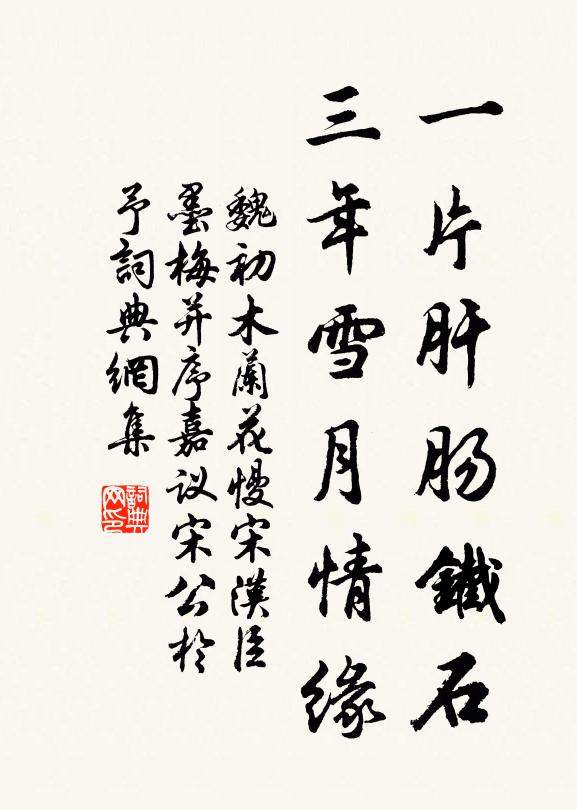 一片肝肠鐵石
三年雪月情緣
魏初木蘭花慢宋漢臣
墨梅并序嘉议宋公於
予詞典網集
詞典网印